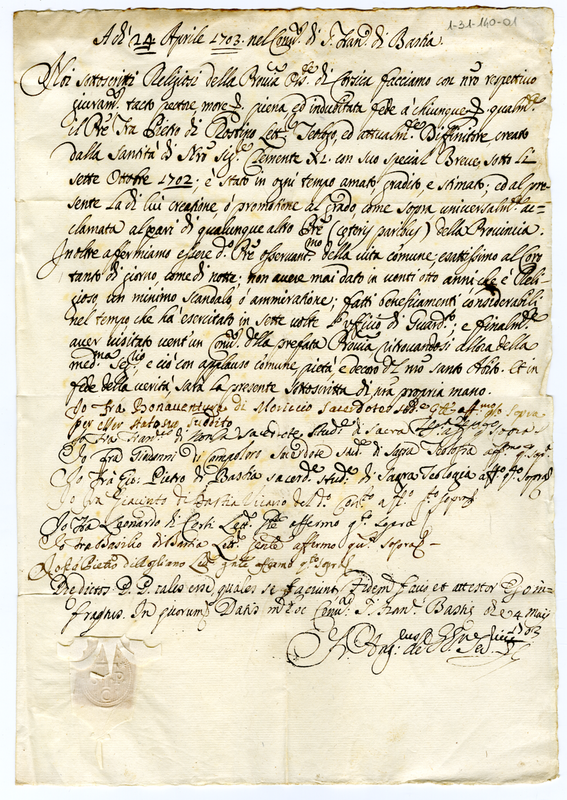 1-31-140-01
A dì 24 Aprile 1703. nel Conv.º di S. Fran.º di Bastia.
Noi sottoscritti Religiosi della Prouia Oss.te di Corsica facciamo con nro respettivo
giuram.º tacto pectore more piena ed indubitata fede à chiunque qualm.te
il Pre Fra Pietro di Rostino Lett.e ed attualm.te Diffinitore, creato
dalla Santità di Nro Sig.re Clemente XI. con suo special Breve sotto li
sette Ottobre 1702; è stato in ogni tempo amato, gradito, e stimato; ed al pre-
sente la di lui creatione, ò promotione al grado, come sopra universalm.te ac-
clamata al pari di qualunque altro Pre (cæteris paribus) della Provincia.
Inoltre affermiamo essere d.º Pre osservant.mo della vita comune, esattissimo al Coro
tanto di giorno come di notte; non avere mai dato in venti otto anni che è Reli-
gioso, un minimo scandalo, ò ammiratione; fatti beneficamenti considerabili
nel tempo che hà esercitato in sette volte l'ufficio di Guard.º; e finalm.te
aver visitato vent'un Conv.ti della prefata Prouia ritrovandosi allora della
med.ma e ciò con applauso comune, pietà e decoro del nro santo Abito. Et in
fede della verità sarà la presente sottoscritta di nra propria mano.
Io fra Bonaventura di Moriccio Sacerdote aff.mo q.to sopra
per esser stato suo suddito
Fra Fran.º di Sacerdote, Stud.te di Sacra
Io fra Giovanni di Campoloro Sacerdote stud.te di Sacra Teologia affermo q.to sop.a
Io Fra Gio: Pietro di Bastia sacerd.te stud.te di Sagra Teologia aff.º q.to sopra
Io fra Giacinto di Bastia Vicario del d.º Con.to aff.º q.to sopra
Io Fra Leonardo di Corti Lett.e affermo q.to sopra
Io fra Basilio di Bastia Lett.e affermo qto sopra
Io fra Pietro di Rogliano Lett.e affermo q.to sopra
Predictos P.P. tales esse, quales se faciunt, fidem facio et attestor Ego in-
frascriptus. In quorum Datis in hoc Conv. S. Fran.ci Bastiæ die 24 Maij
1703